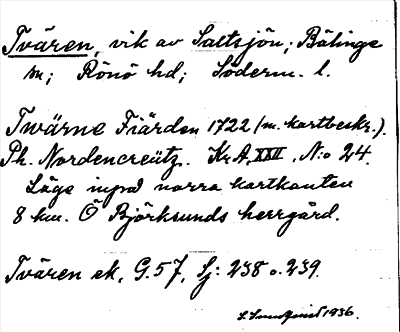 Tvären, vik av Saltsjön; Bälinge
sn; Rönö hd; Söderm. l.
Twärne Fiärden 1722 (m. kartbeskr.).
Ph. Nordencreütz. Kr.A. XXII, N:o 24.
Läge invid norra kartkanten
8 km. Ö Björksunds herrgård.
Tvären ek. G.57, Sj: 238 o. 239.
1936.